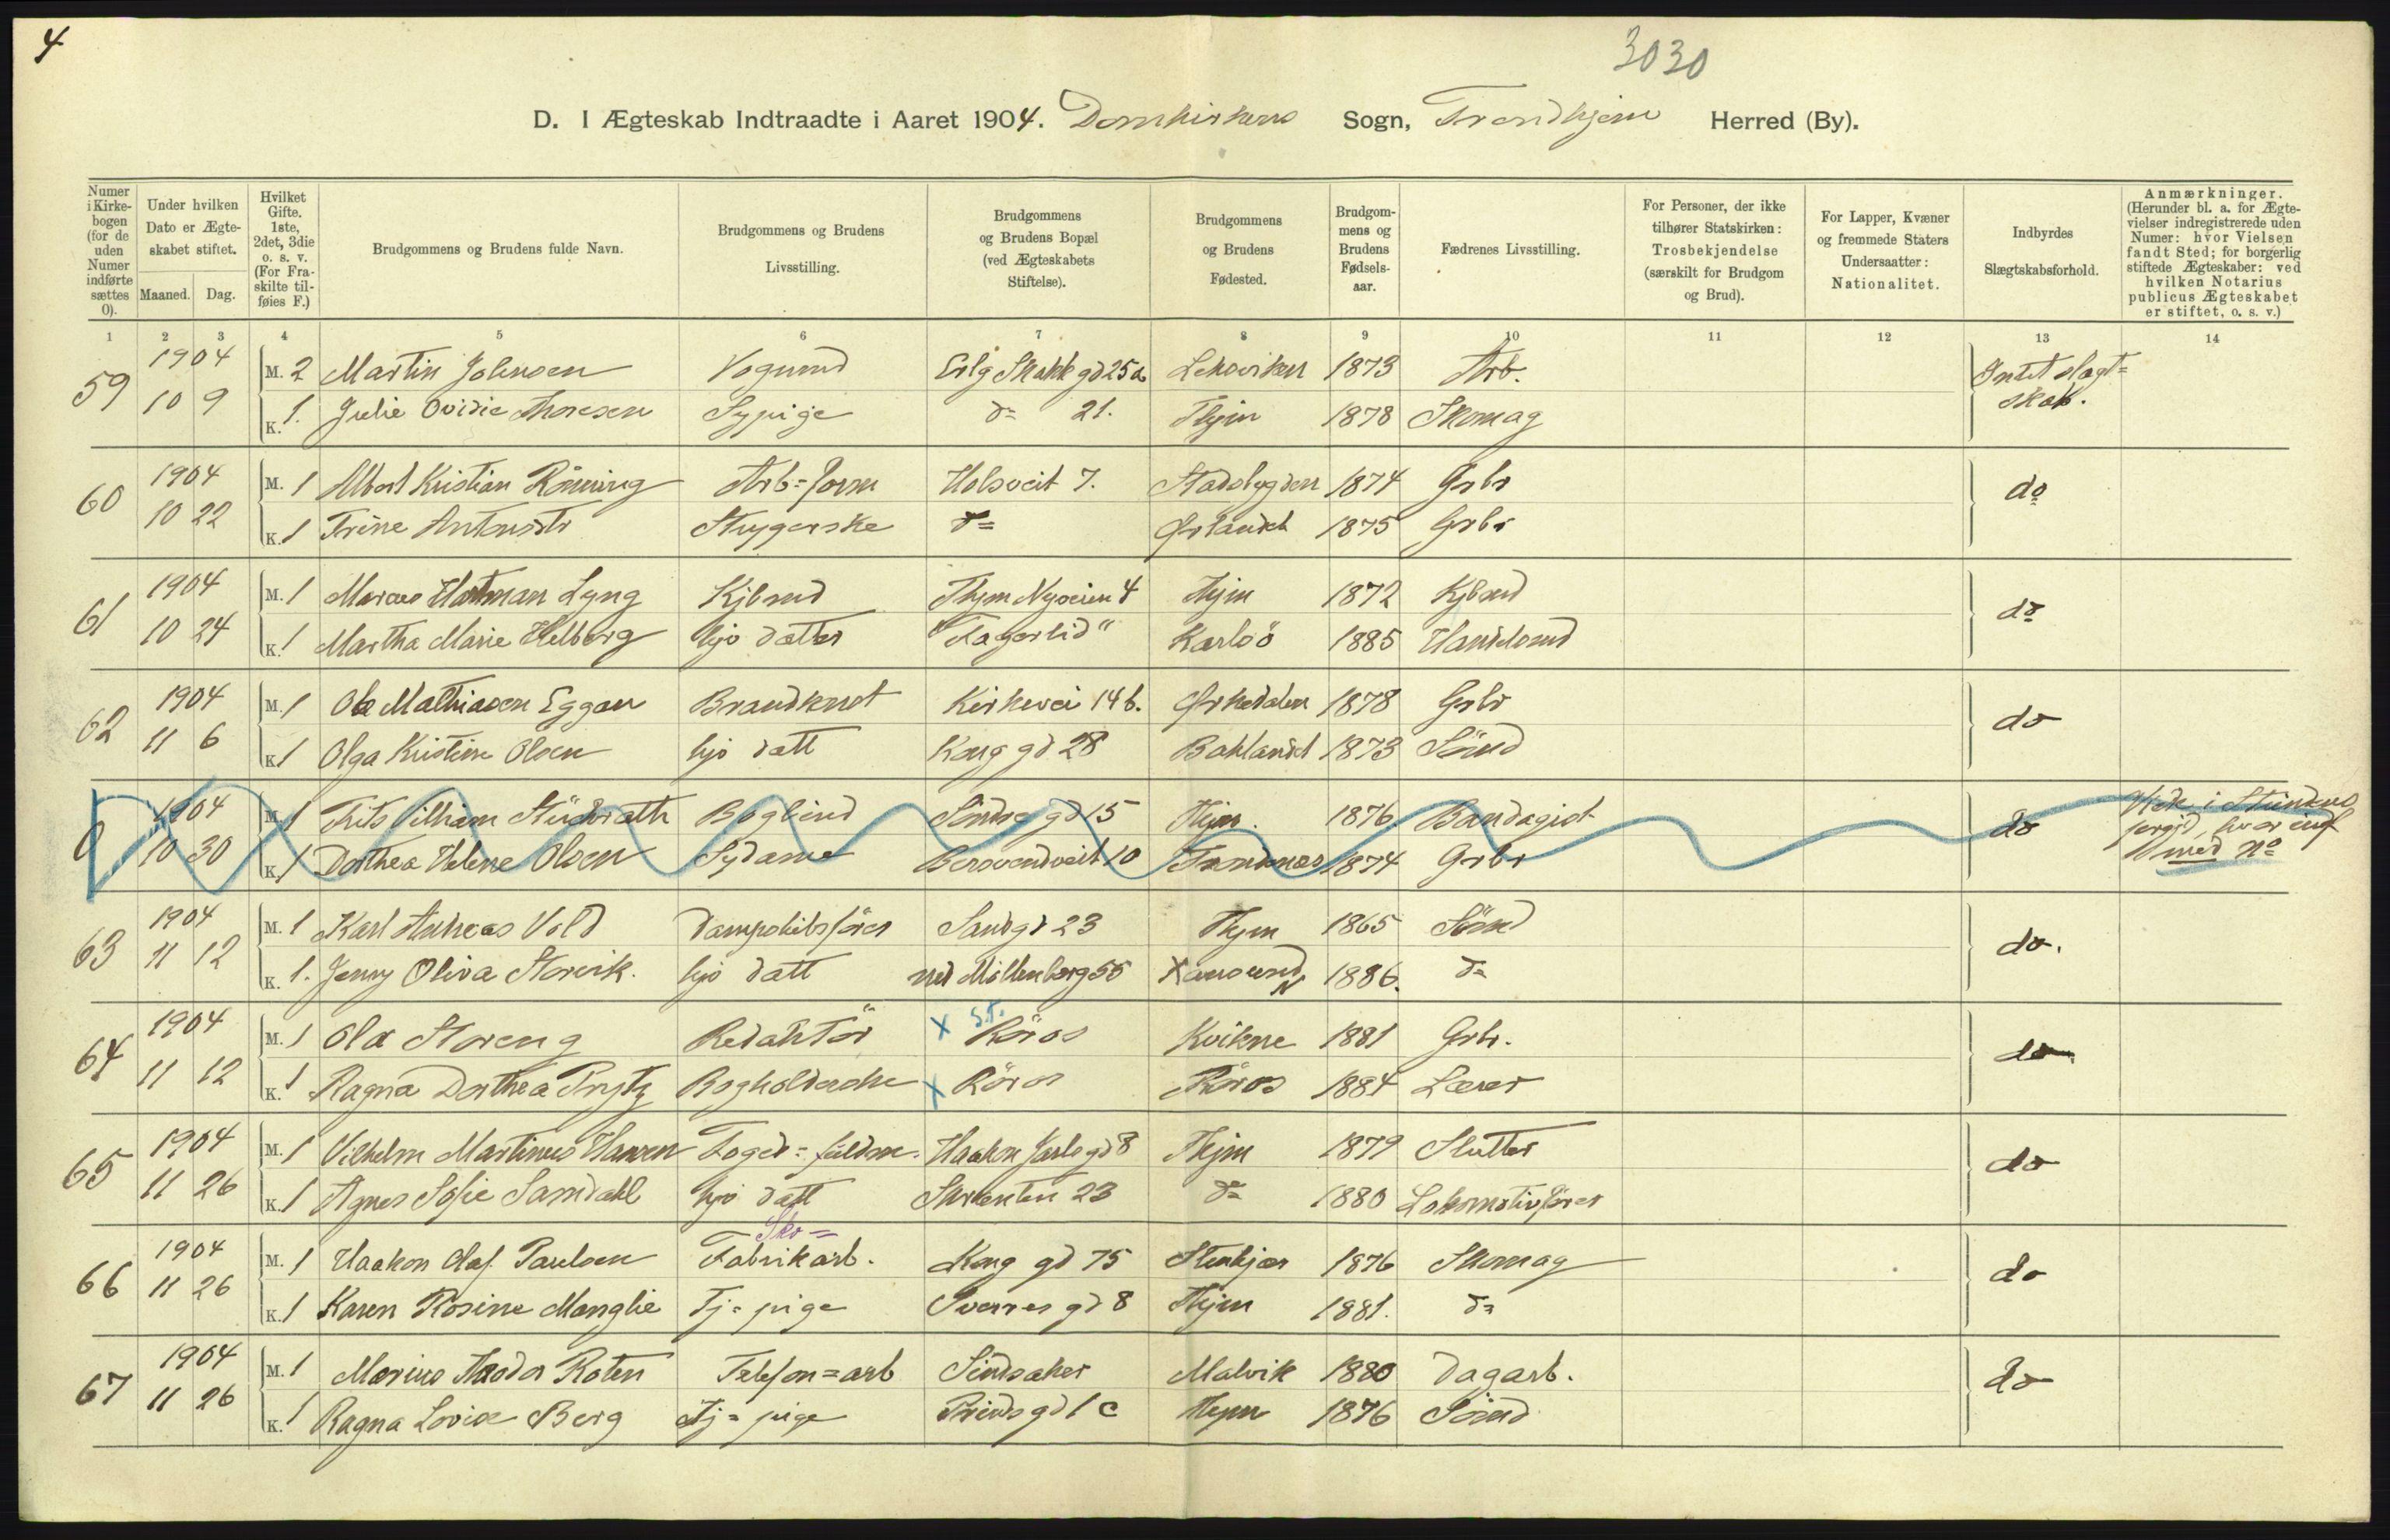 4
3030
D. I Ægteskab Indtraadte i Aaret 1904. Domkirkens Sogn, Trondhjem Herred (By).
Numer i Kirke- bogen (for de uden Numer indførte sættes 0).
Under hvilken Dato er Ægte- skabet stiftet.
Maaned. Dag.
Hvilket Gifte. 1ste, 2det, 3die o. s. v. (For Fra- skilte til- føies F.)
Brudgommens og Brudens fulde Navn.
Brudgommens og Brudens Livsstilling.
Brudgommens og Brudens Bopæl (ved Ægteskabets Stiftelse).
Brudgommens og Brudens Fødested.
Brudgom- mens og Brudens Fødsels- aar.
Fædrenes Livsstilling.
For Personer, der ikke tilhører Statskirken: Trosbekjendelse (særskilt for Brudgom og Brud).
For Lapper, Kvæner og fremmede Staters Undersaatter: Nationalitet.
Indbyrdes Slægtskabsforhold.
Anmærkninger. (Herunder bl. a. for Ægte- vielser indregistrerede uden Numer: hvor Vielsen fandt Sted; for borgerlig stiftede Ægteskaber: ved hvilken Notarius publicus Ægteskabet er stiftet, o. s. v.)
1 2 3 4 5 6 7 8 9 10 11 12 13 14
59 1904 M. 2 Martin Johnsen Vognmd Erlg Skakk gd 25a Leksviken 1873 Arb. Intet slægt=
10 9 K. 1. Julie Ovidie Thoresen Sypige do 21. Thjm 1878 Skomag skab.
60 1904 M. 1 Albert Kristian Rönning Arb=form Holsveit 7. Stadsbygden 1874 Grbr do
10 22 K. 1 Trine Antonsdtr Strygerske do Ørlandet 1875 Grbr
61 1904 M. 1 Marcus Hartman Lyng Kjbmd Thjm Nyveien 4 Thjm 1872 Kjbmd do
10 24 K. 1 Martha Marie Helberg hjv datter "Fagerlid" Karlsö 1885 Handelsmd
62 1904 M. 1 Ole Mathiasen Eggan Brandknst Kirkevei 14 b. Orkedalen 1878 Grbr do
11 6 K. 1 Olga Kristine Olsen hjv datt Kong gd 28 Baklandet 1873 Sömd
0 1904 M. 1 Frits Vilhiam Stüdrath Bogbind Söndre gd 15 Thjm. 1876 Bandagist do
10 30 K. 1 Dorthea Helene Olsen Sydame 10 1874 Grbr med No
63 1904 M. 1 Karl Andreas Vold Dampskibsförer Sandgd 23 Thjm 1865 Sömd do.
11 12 K. 1. Jenny Oliva Storvik. hjv datt ned Möllenberg 55 Xansund N 1886. do
64 1904 M. 1 Ola Storeng Redaktör X S.T. Röros Kvikne 1881 Grbr. do
11 12 K. 1 Ragna Dorthea Prytz Bogholderske X Röros Röros 1884 Lærer
65 1904 M. 1 Vilhelm Martinus Hansen Foged=fuldm. Haakon Jarls gd 8 Thjm 1879 Slutter do
11 26 K. 1 Agnes Sofie Samdahl hjv datt Skrænten 23 do 1880 Lokomotivförer
Sko=
66 1904 M. 1 Haakon Olaf Paulsen Fabrikarb. Kong gd 75 Stenkjær 1876 Skomag do
11 26 K. 1 Karen Rosine Manglie Tj=pige Sverres gd 8 Thjm 1881. do
67 1904 M. 1 Marius Theodor Roten Telefon=arb Sindsaker Malvik 1880 Dagarb. do
11 26 K. 1 Ragna Lovise Berg Tj=pige Prinds gd 1 c Thjm 1876 Sömd